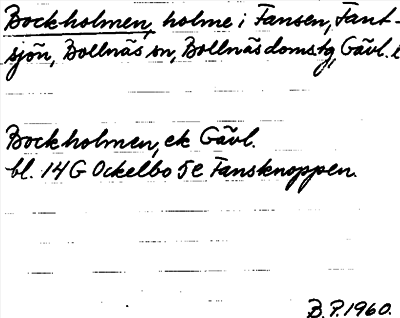 Bockholmen, holme i Fansen, Fant-
sjön, Bollnäs sn, Bollnäs domstg, Gävl. l
Bockholmen, ek Gävl.
bl. 14 G Ockelbo 5e Fansknoppen.
B.P. 1960.